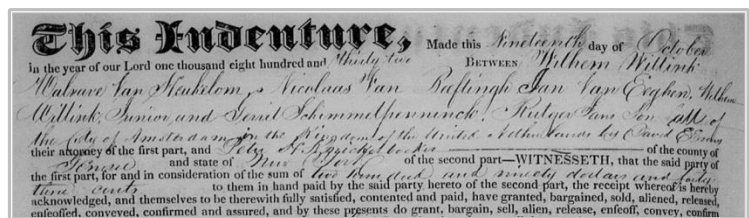 This Indenture, Made this Nineteenth day of October
in the year of our Lord one thousand eight hundred and thirty two BETWEEN Wilhem Willink
Walrave Van Heukelom, Nicolaas Van Baftingh Jan Van Eeghen, Wilhem
Willink Junior, and Gerrit Schimmelpenninck, Rutger Jans Son all of
the City of Amsterdam in the Kingdom of the United Netherlands by David E. Evans
their attorney of the first part, and Peter H. of the county of
Genesee and state of New York of the second part—WITNESSETH, that the said party of
the first part, for and in consideration of the sum of two hundred and ninety dollars and forty
three cents to them in hand paid by the said party hereto of the second part, the receipt whereof is hereby
acknowledged, and themselves to be therewith fully satisfied, contented and paid, have granted, bargained, sold, aliened, released,
enfeoffed, conveyed, confirmed and assured, and by these presents do grant, bargain, sell, alien, release, enfeoff, convey, confirm